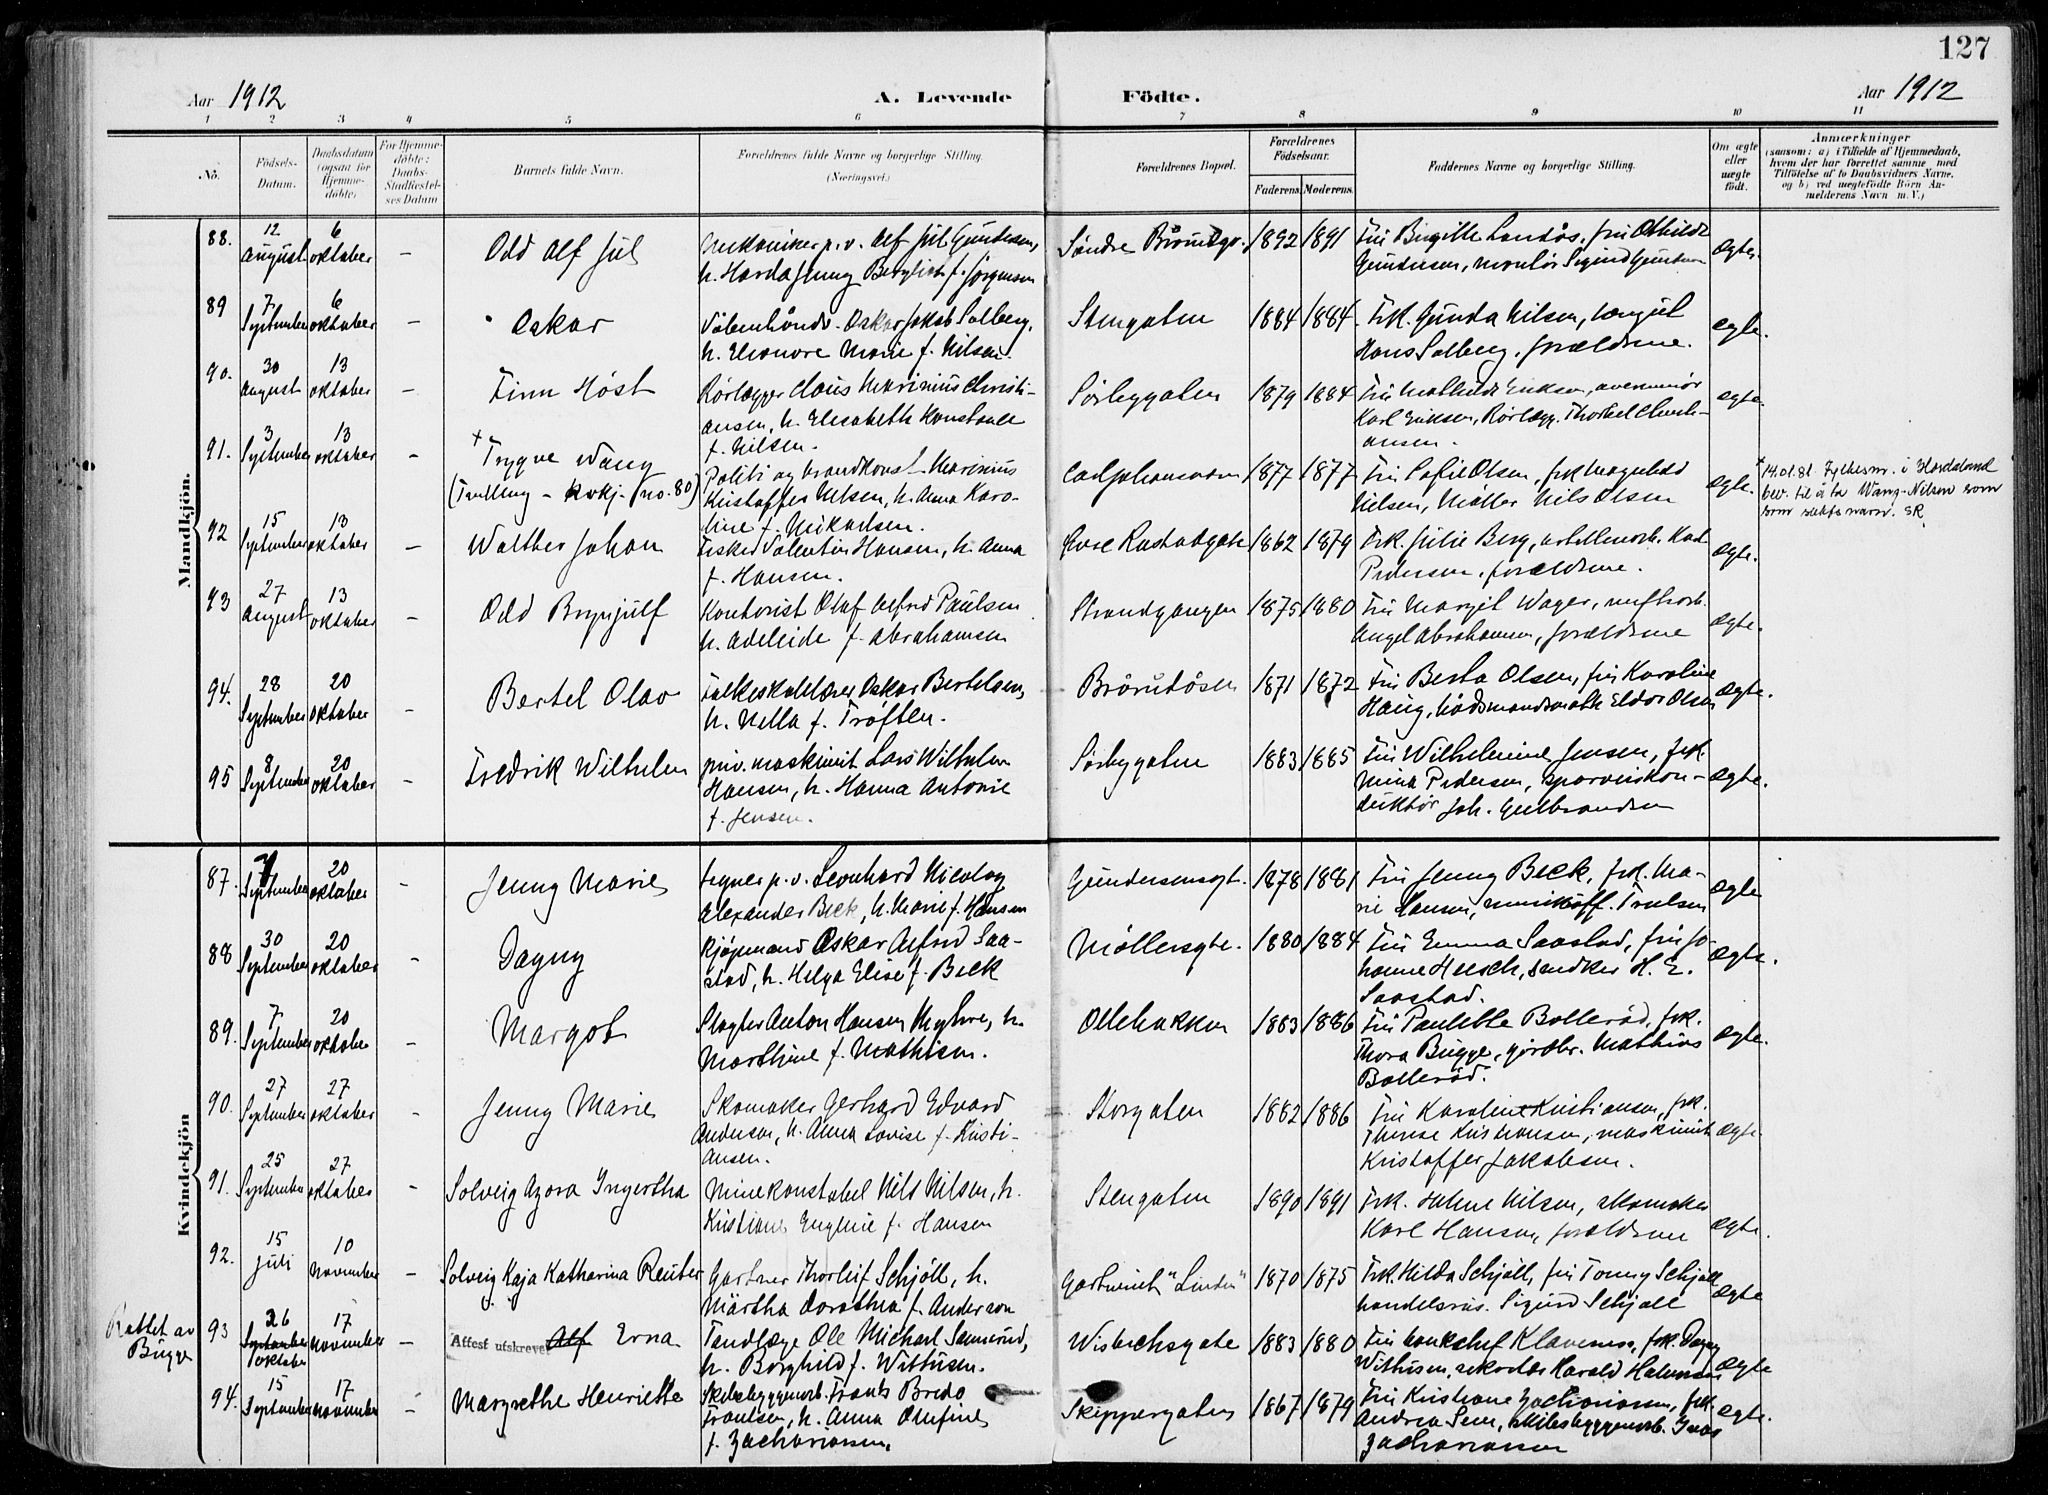 127
Aar 1912
A. Levende
Födte.
Aar 1912
1 2 3 4 5 6 7 8 9 10 11
No.
Födsels-
Datum.
Daabsdatum
(ogsaa for
Hjemme-
döbte)
For Hjemme-
döbte:
Daabs-
Stadfæstel-
ses Datum
Barnets fulde Navn.
Forældrenes fulde Navne og borgerlige Stilling
(Næringsvei.)
Forældrenes Bopæl.
Forældrenes
Födselsaar.
Faderens. Moderens.
Faddernes Navne og borgerlige Stilling.
Om ægte
eller
uægte
födt.
Anmærkninger
(saasom: a) i Tilfælde af Hjemmedaab,
hvem der har forrettet samme, med
Tilföielse af to Daabsvidners Navne,
og b) ved uægtefödte Börn An-
melderens Navn m. V.)
Mandkjön.
88. 12 august 6 oktober Odd Alf Jul
Mekaniker p. v. Alf Jul Gundersen,
h. Harda Jenny Bergliot f. Jørgensen
Søndre 1892 1891
Fru Birgitte fru Othilde
Gundersen, montør Sigurd Gundersen
ægte.
89 7 September 6 oktober – Oskar
Oskar Jakob Solberg,
h. Eleonore Marie f. Nilsen.
Stengaten 1884 1884
Frk. Gunda Nilsen,
Hans Solberg, forældrene.
ægte.
90. 30 august 13 oktober – Finn Høst
Rørlægger Claus Marinius Christi-
ansen, h. Elisabeth Konstanse
f. Nilsen.
Sørbygaten 1879 1884
Fru Mathilde Eriksen,
Karl Eriksen, Rørlægg. Thorkel Christi-
ansen.
ægte.
91. 3 September 13 oktober – + Trygve Wang
(Tvilling – kvkj. no. 80)
Politi og brandkonst. Marinius
Kristoffer Nilsen, h. Anna Karo-
line f. Mikalsen.
Carljohansvern 1877 1877
Fru Sofie Olsen, frk Magnhild
Nilsen, Matros Nils Olsen
ægte.
+ 14.01.81. Fylkesm. i Hordaland
bev. til å ta Wang-Nilsen som
som slektsnavn. SR.
92 15 September 13 oktober – Walther Johan
Fisker Valentin Hansen, h. Anna
f. Hansen.
Øvre Rustadgate 1862 1879
Frk. Julie Berg, Karl
Pedersen, forældrene.
ægte.
93 27 august 13 oktober – Odd Brynjulf
Kontorist Olaf Alfred Paulsen
h. Adeleide f. Abrahamsen
Strandgangen 1875 1880
Fru Margit Wager,
Angel Abrahamsen, forældrene
ægte.
94. 28 September 20 oktober – Bertel Olav
Folkeskolelærer Oskar Bertelsen,
h. Nella f. Trøften.
Brårudåsen 1871 1872
Fru Berta Olsen, fru Karoline
Haug, Eldor Olsen
ægte.
95 8 September 20 oktober – Fredrik Wilhelm
priv. maskinist Lars Wilhelm
Hansen, h. Hanna Antonie
f. Jensen.
Sørbygaten 1883 1885
Fru Wilhelmine Jensen, frk.
Mina Pedersen, sporveiskon-
duktør Joh. Gulbrandsen
ægte.
Kvindekjön
87. 7 September 20 oktober – Jenny Marie
Tegner p. v. Leonhard Nicolay
Alexander Beck, h. Marie f. Hansen
Gundersensgt. 1878 1881
Fru Jenny Beck, frk. Ma-
rie Hansen, Trulsen
ægte
88 30 September 20 oktober – Dagny
Kjøpmand Oskar Alfred Saa-
stad, h. Helga Elise f. Beck
Møllersgte. 1880 1884
Fru Emma Saastad, fru Jo-
hanne Hersch, snedker H. E.
Saastad.
ægte.
89. 7 September 20 oktober – Margot
Slagter Anton Hansen Myhre, h.
Marthine f. Mathisen.
Ollebakken 1883 1886
Fru Paulette Bollerød, frk.
Thora Bugge, gårdbr. Mathias
Bollerød.
ægte.
90. 27 September 27 oktober – Jenny Marie
Skomaker Gerhard Edvard
Andersen, h. Anna Lovise f. Kristi-
ansen.
Storgaten 1882 1886
Fru Karoline Kristiansen, frk.
Therese Kristiansen, maskinist
Kristoffer Jakobsen.
ægte.
91. 25 September 27 oktober – Solveig Azora Ingertha
Minekonstabel Nils Nilsen, h.
Kristiane Eugenie f. Hansen
Stengaten 1890 1891
Frk. Helene Nilsen, skomaker
Karl Hansen, forældrene
ægte.
92. 15 juli 10 november – Solveig Kaja Katharina Reuter
Gartner Thorleif Schjöll, h.
Märtha Dorothea f. Anderson
"Linden" 1870 1875
Frk. Hilda Schjöll, fru Tonny Schjöll
handelsreis. Sigurd Schjöll
ægte
Rettet av
Bugge
93 26 September oktober 17 november – Attest utskrevet Alf Erna
Tandlæge Ole Michael Sannerud,
h. Borghild f. Withusen.
Wisbechsgate 1883 1880
Fru banksjef Klaveness, frk. Dagny
Withusen, sekretær Harald Halvorsen
ægte
94. 15 September 17 november – Margrethe Henriette
Skibsbyggerarb. Frants Bredo
Frantsen, h. Anna Olufine
f. Zachariassen.
Skippergaten 1867 1879
Fru Kristiane Zachariassen, frk.
Andrea Sem, skibsbyggerarb. Ivar
Zachariassen
ægte.